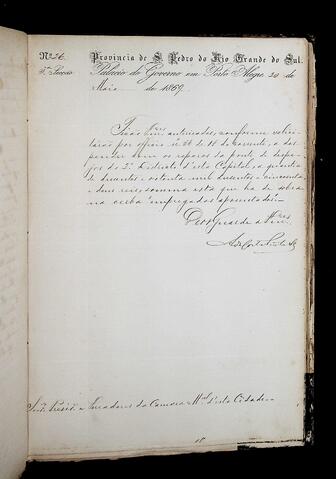 Nº 26. Provincia de S. Pedro do Rio Grande do Sul.
Palacio do Governo em Porto Alegre 20 de
Maio de 1869.
Ficão Vm.ces autorisados, conforme solici-
tárão por officio nº 26 de 11 do corrente, a des-
pender com os reparos da ponte de despe-
jos do 2º Districto d'esta Capital, a quantia
de duzentos e oitenta mil duzentos e cincoenta
e dous reis, somma esta que ha de sobra
na verba "empregados aposentados".
Deos Guarde a Vm.ces
Snr.es Presid.e e Vereadores da Camara M.al d'esta Cidade